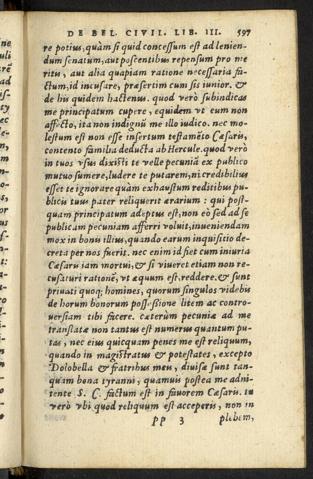 DE BEL. CIVIL. LIB. III. 597
re potius, quàm si quid concessum est ad lenien-
dum senatum, aut poscentibus repensum pro me
ritis, aut alia quapiam ratione necessaria fa-
ctum, id incusare, præsertim cum sis iunior. &
de his quidem hactenus. quod verò subindicas
me principatum cupere, equidem vt eum non
affecto, ita non indignū me illo iudico. nec mo-
lestum est non esse insertum testamēto Cæsaris,
contento familia deducta ab Hercule. quod verò
in tuos vsus dixisti te velle pecuniā ex publico
mutuo sumere, ludere te putarem, ni credibilius
esset te ignorare quàm exhaustum reditibus pu-
blicis tuus pater reliquerit ærarium : qui post-
quam principatum adeptus est, non eò sed ad se
publicam pecuniam afferri voluit, inueniendam
mox in bonis illius, quando earum inquisitio de-
creta per nos fuerit. nec enim id fiet cum iniuria
Cæsaris iam mortui, & si viueret etiam non re-
cusaturi rationē, vt æquum est, reddere. & sunt
priuati quoq; homines, quorum singulos videbis
de horum bonorum possessione litem ac contro-
uersiam tibi facere. cæterùm pecuniæ ad me
translatæ non tantus est numerus quantum pu-
tas, nec eius quicquam penes me est reliquum,
quando in magistratus & potestates, excepto
Dolobella & fratribus meis, diuisæ sunt tan-
quàm bona tyranni, quamuis postea me adni-
tente S. C. factum est in fauorem Cæsaris. tu
verò vbi quod reliquum est acceperis, non in
PP 3 plebem,